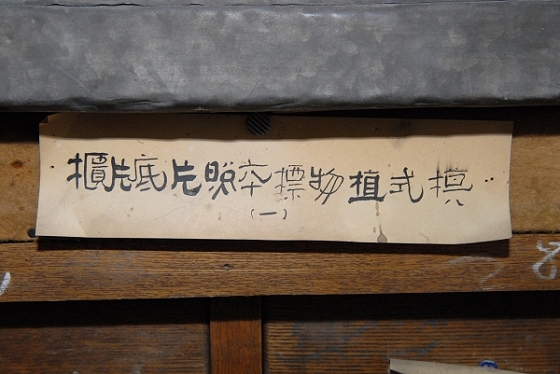 模式植物標本照片底片櫃
(一)